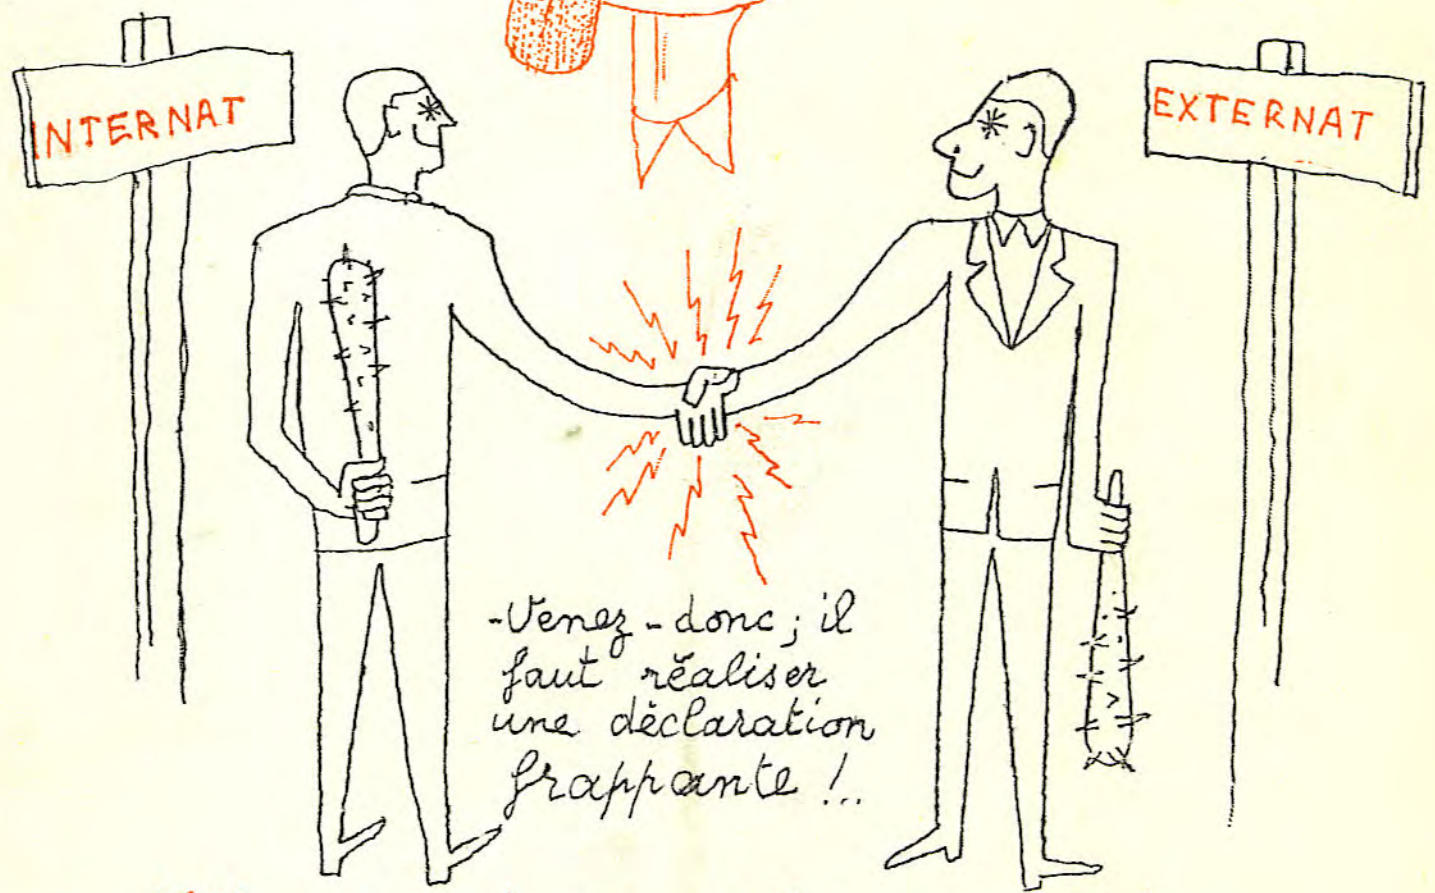 INTERNAT
EXTERNAT
-Venez-donc; il
faut réaliser
une déclaration
frappante !..